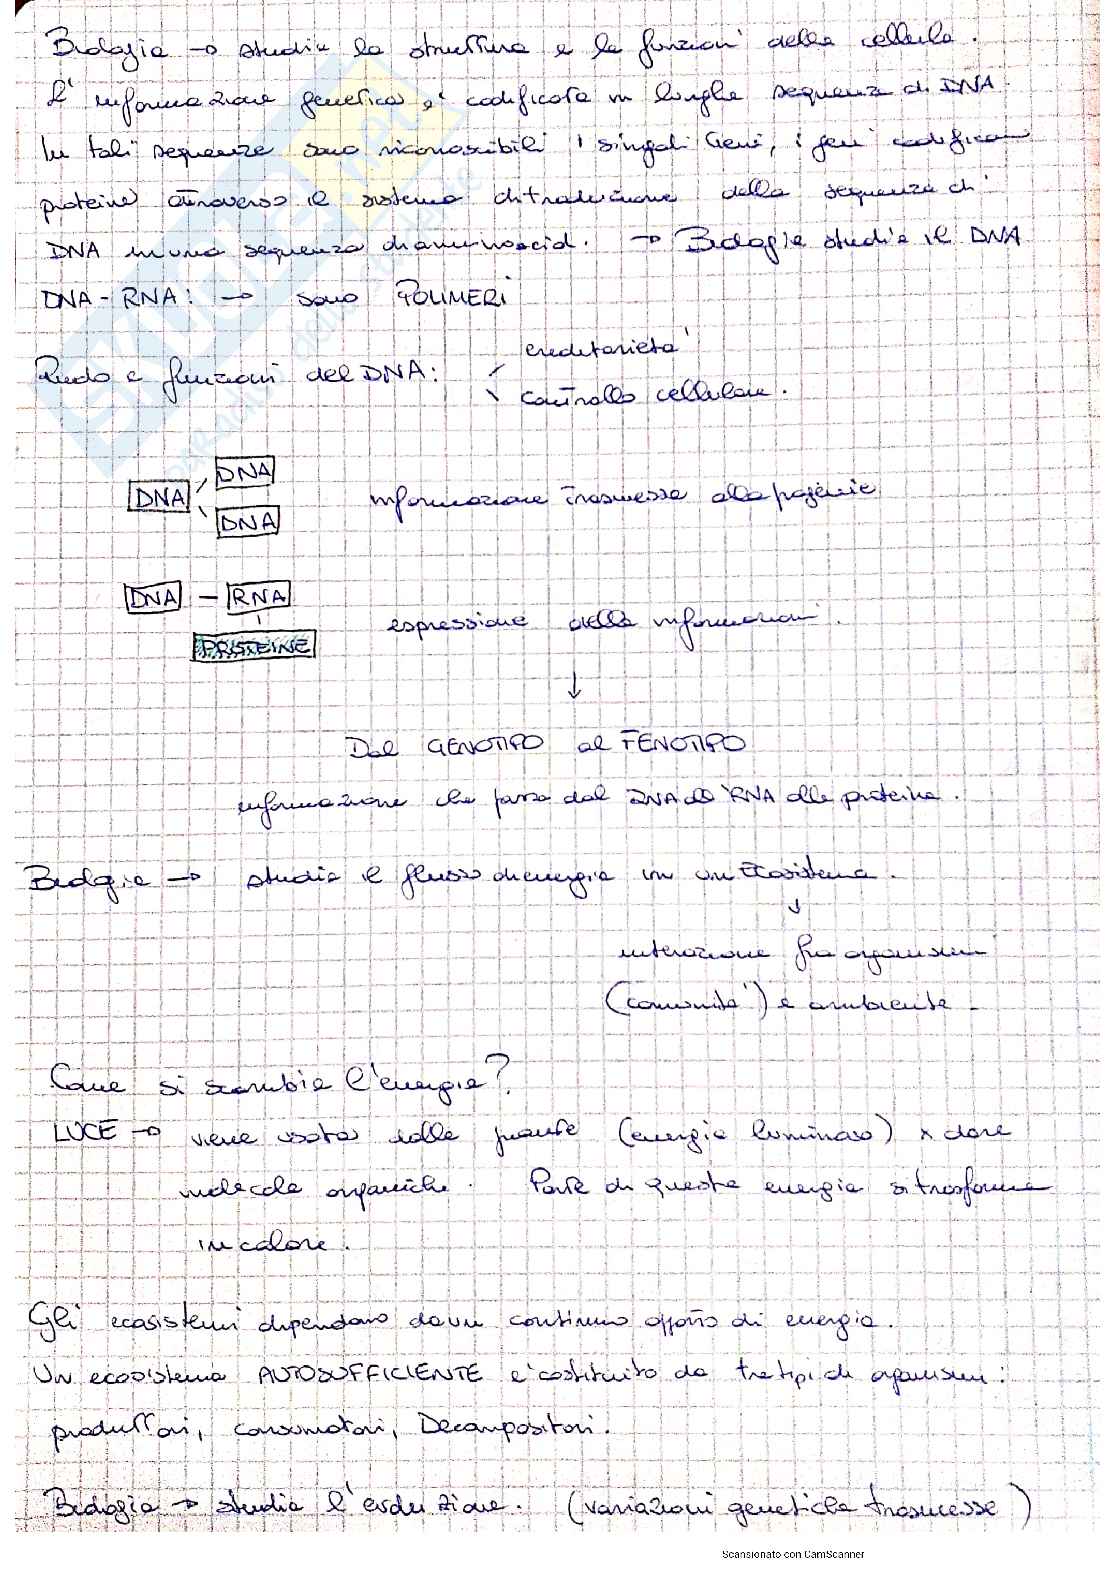 Biologia → studia la struttura e le funzioni della cellula.
L'informazione genetica è codificata in lunghe sequenze di DNA.
In tali sequenze sono riconoscibili i singoli Geni, i geni codificano
proteine attraverso il sistema di traduzione della sequenza di
DNA in una sequenza di amminoacidi. → Biologia studia il DNA
DNA - RNA: → sono POLIMERI
Ruolo e funzioni del DNA:
ereditarietà
controllo cellulare.
DNA
DNA
DNA
informazione trasmessa alla progenie
DNA - RNA
PROTEINE
espressione della informazioni.
↓
Dal GENOTIPO al FENOTIPO
informazione che passa dal DNA all'RNA alle proteine.
Biologia → studia il flusso di energia in un Ecosistema.
↓
interazione fra organismi
(comunità) e ambiente.
Come si scambia l'energia?
LUCE → viene usata dalle piante (energia luminosa) x dare
molecole organiche. Parte di questa energia si trasforma
in calore.
Gli ecosistemi dipendono da un continuo apporto di energia.
Un ecosistema AUTOSUFFICIENTE è costituito da tre tipi di organismi:
produttori, consumatori, Decompositori.
Biologia → studia l'evoluzione. (variazioni genetiche trasmesse)
Scansionato con CamScanner